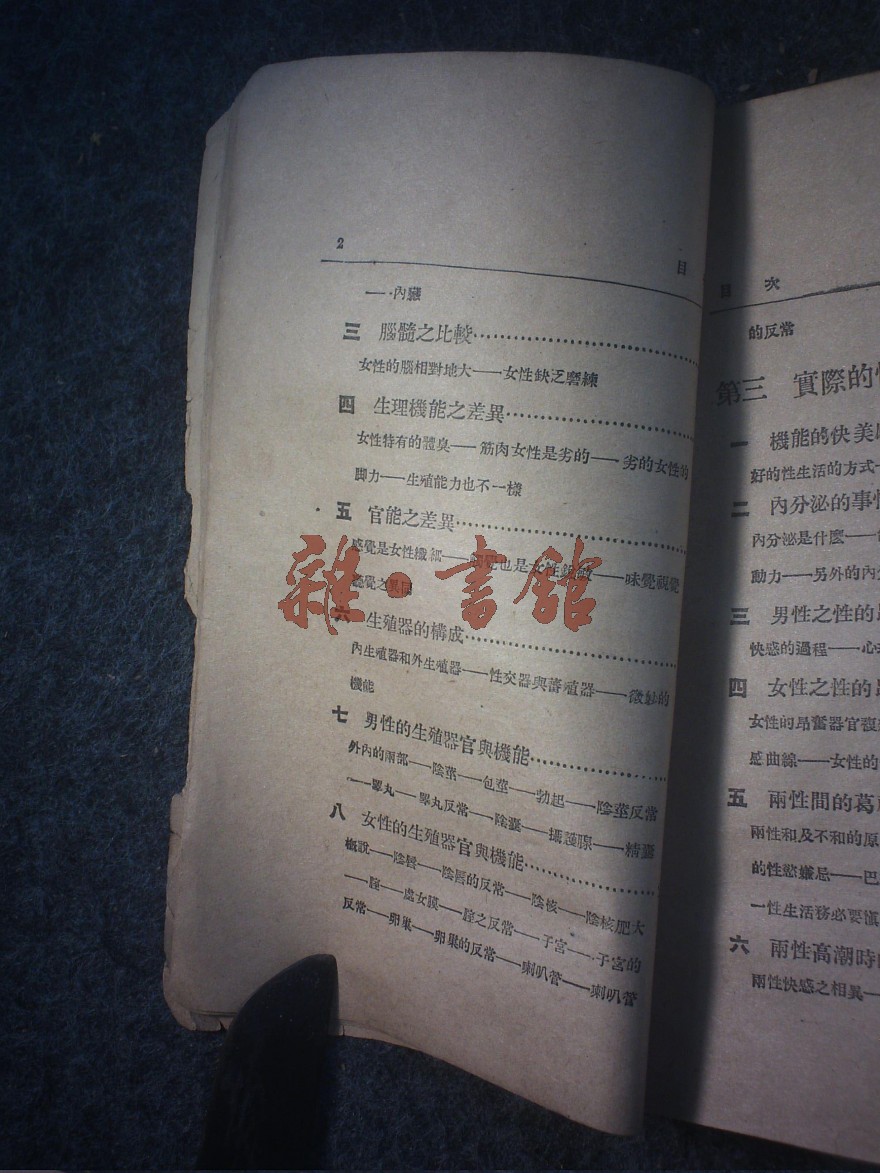 2
目
——內臟
三 腦髓之比較
女性的腦相對地大——女性缺乏磨練
四 生理機能之差異
女性特有的體臭——筋肉女性是劣的——劣的女性的
脚力——生殖能力也不一樣
五 官能之差異
感覺是女性纖細——觸覺也是女性銳敏——味覺視覺
聽覺之異同
雜·書館
六 生殖器的構成
內生殖器和外生殖器——性交器與蕃殖器——微妙的
機能
七 男性的生殖器官與機能
外內的兩部——陰莖——包莖——勃起——陰莖反常
——睾丸——睾丸反常——陰囊——攝護腺——精囊
八 女性的生殖器官與機能
概說——陰唇——陰唇的反常——陰核——陰核肥大
——膣——處女膜——膣之反常——子宮——子宮的
反常——卵巢——卵巢的反常——喇叭管——喇叭管
目次
的反常
第三 實際的
一 機能的快美
好的性生活的方式
二 內分泌的事
內分泌是什麼——
動力——另外的內分
三 男性之性的
快感的過程——心
四 女性之性的
女性的昂奮器官
感曲線——女性的
五 兩性間的葛
兩性和及不和的原
的性慾嫌忌——巴
一性生活務必要
六 兩性高潮時
兩性快感之相異——